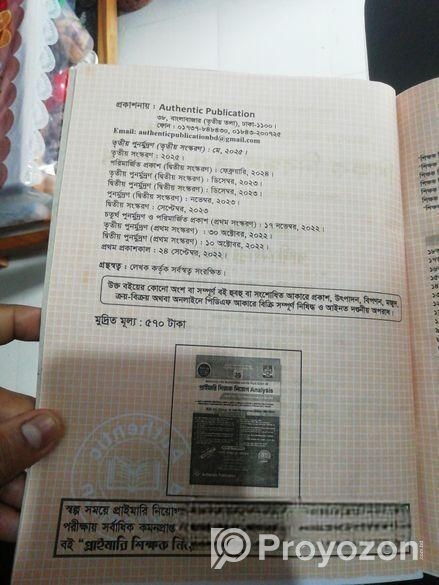 প্রকাশনায় : Authentic Publication
৩৮, বাংলাবাজার (তৃতীয় তলা), ঢাকা-১১০০।
ফোন : ০১৭৩৭-৮৪৮৪৩০, ০১৮৪৩-২০০৭২৫
Email: authenticpublicationbd@gmail.com
তৃতীয় পুনর্মুদ্রণ (তৃতীয় সংস্করণ) : মে, ২০২৫।
তৃতীয় সংস্করণ : ২০২৫।
পরিমার্জিত প্রকাশ (দ্বিতীয় সংস্করণ) : ফেব্রুয়ারি, ২০২৪।
তৃতীয় পুনর্মুদ্রণ (দ্বিতীয় সংস্করণ) : ডিসেম্বর, ২০২৩।
দ্বিতীয় পুনর্মুদ্রণ (দ্বিতীয় সংস্করণ) : ডিসেম্বর, ২০২৩।
পুনর্মুদ্রণ (দ্বিতীয় সংস্করণ) : নভেম্বর, ২০২৩।
দ্বিতীয় সংস্করণ : সেপ্টেম্বর, ২০২৩
চতুর্থ পুনর্মুদ্রণ ও পরিমার্জিত প্রকাশ (প্রথম সংস্করণ) : ১৭ নভেম্বর, ২০২২।
তৃতীয় পুনর্মুদ্রণ (প্রথম সংস্করণ) : ৩০ অক্টোবর, ২০২২।
দ্বিতীয় পুনর্মুদ্রণ (প্রথম সংস্করণ) : ১০ অক্টোবর, ২০২২।
প্রথম প্রকাশকাল : ২৪ সেপ্টেম্বর, ২০২২।
গ্রন্থস্বত্ব : লেখক কর্তৃক সর্বস্বত্ব সংরক্ষিত।
উক্ত বইয়ের কোনো অংশ বা সম্পূর্ণ বই হুবহু বা সংশোধিত আকারে প্রকাশ, উৎপাদন, বিপণন, মজুদ
ক্রয়-বিক্রয় অথবা অনলাইনে পিডিএফ আকারে বিক্রি সম্পূর্ণ নিষিদ্ধ ও আইনত দণ্ডনীয় অপরাধ।
মুদ্রিত মূল্য : ৫৭০ টাকা
প্রাইমারি শিক্ষক নিয়োগ Analysis
Authentic Publication
স্বল্প সময়ে প্রাইমারি নিয়োগ
পরীক্ষায় সর্বাধিক কমনপ্রাপ্ত
বই "প্রাইমারি শিক্ষক
Proyozon